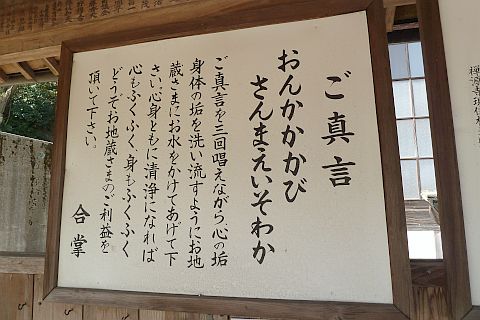 ご真言
おんかかかび
さんまえいそわか
ご真言を三回唱えながら心の垢
身体の垢を洗い流すようにお地
蔵さまにお水をかけてあげて下
さい。心身ともに清浄になれば
心もふくふく、身もふくふく
どうぞお地蔵さまのご利益を
頂いて下さい。
合掌